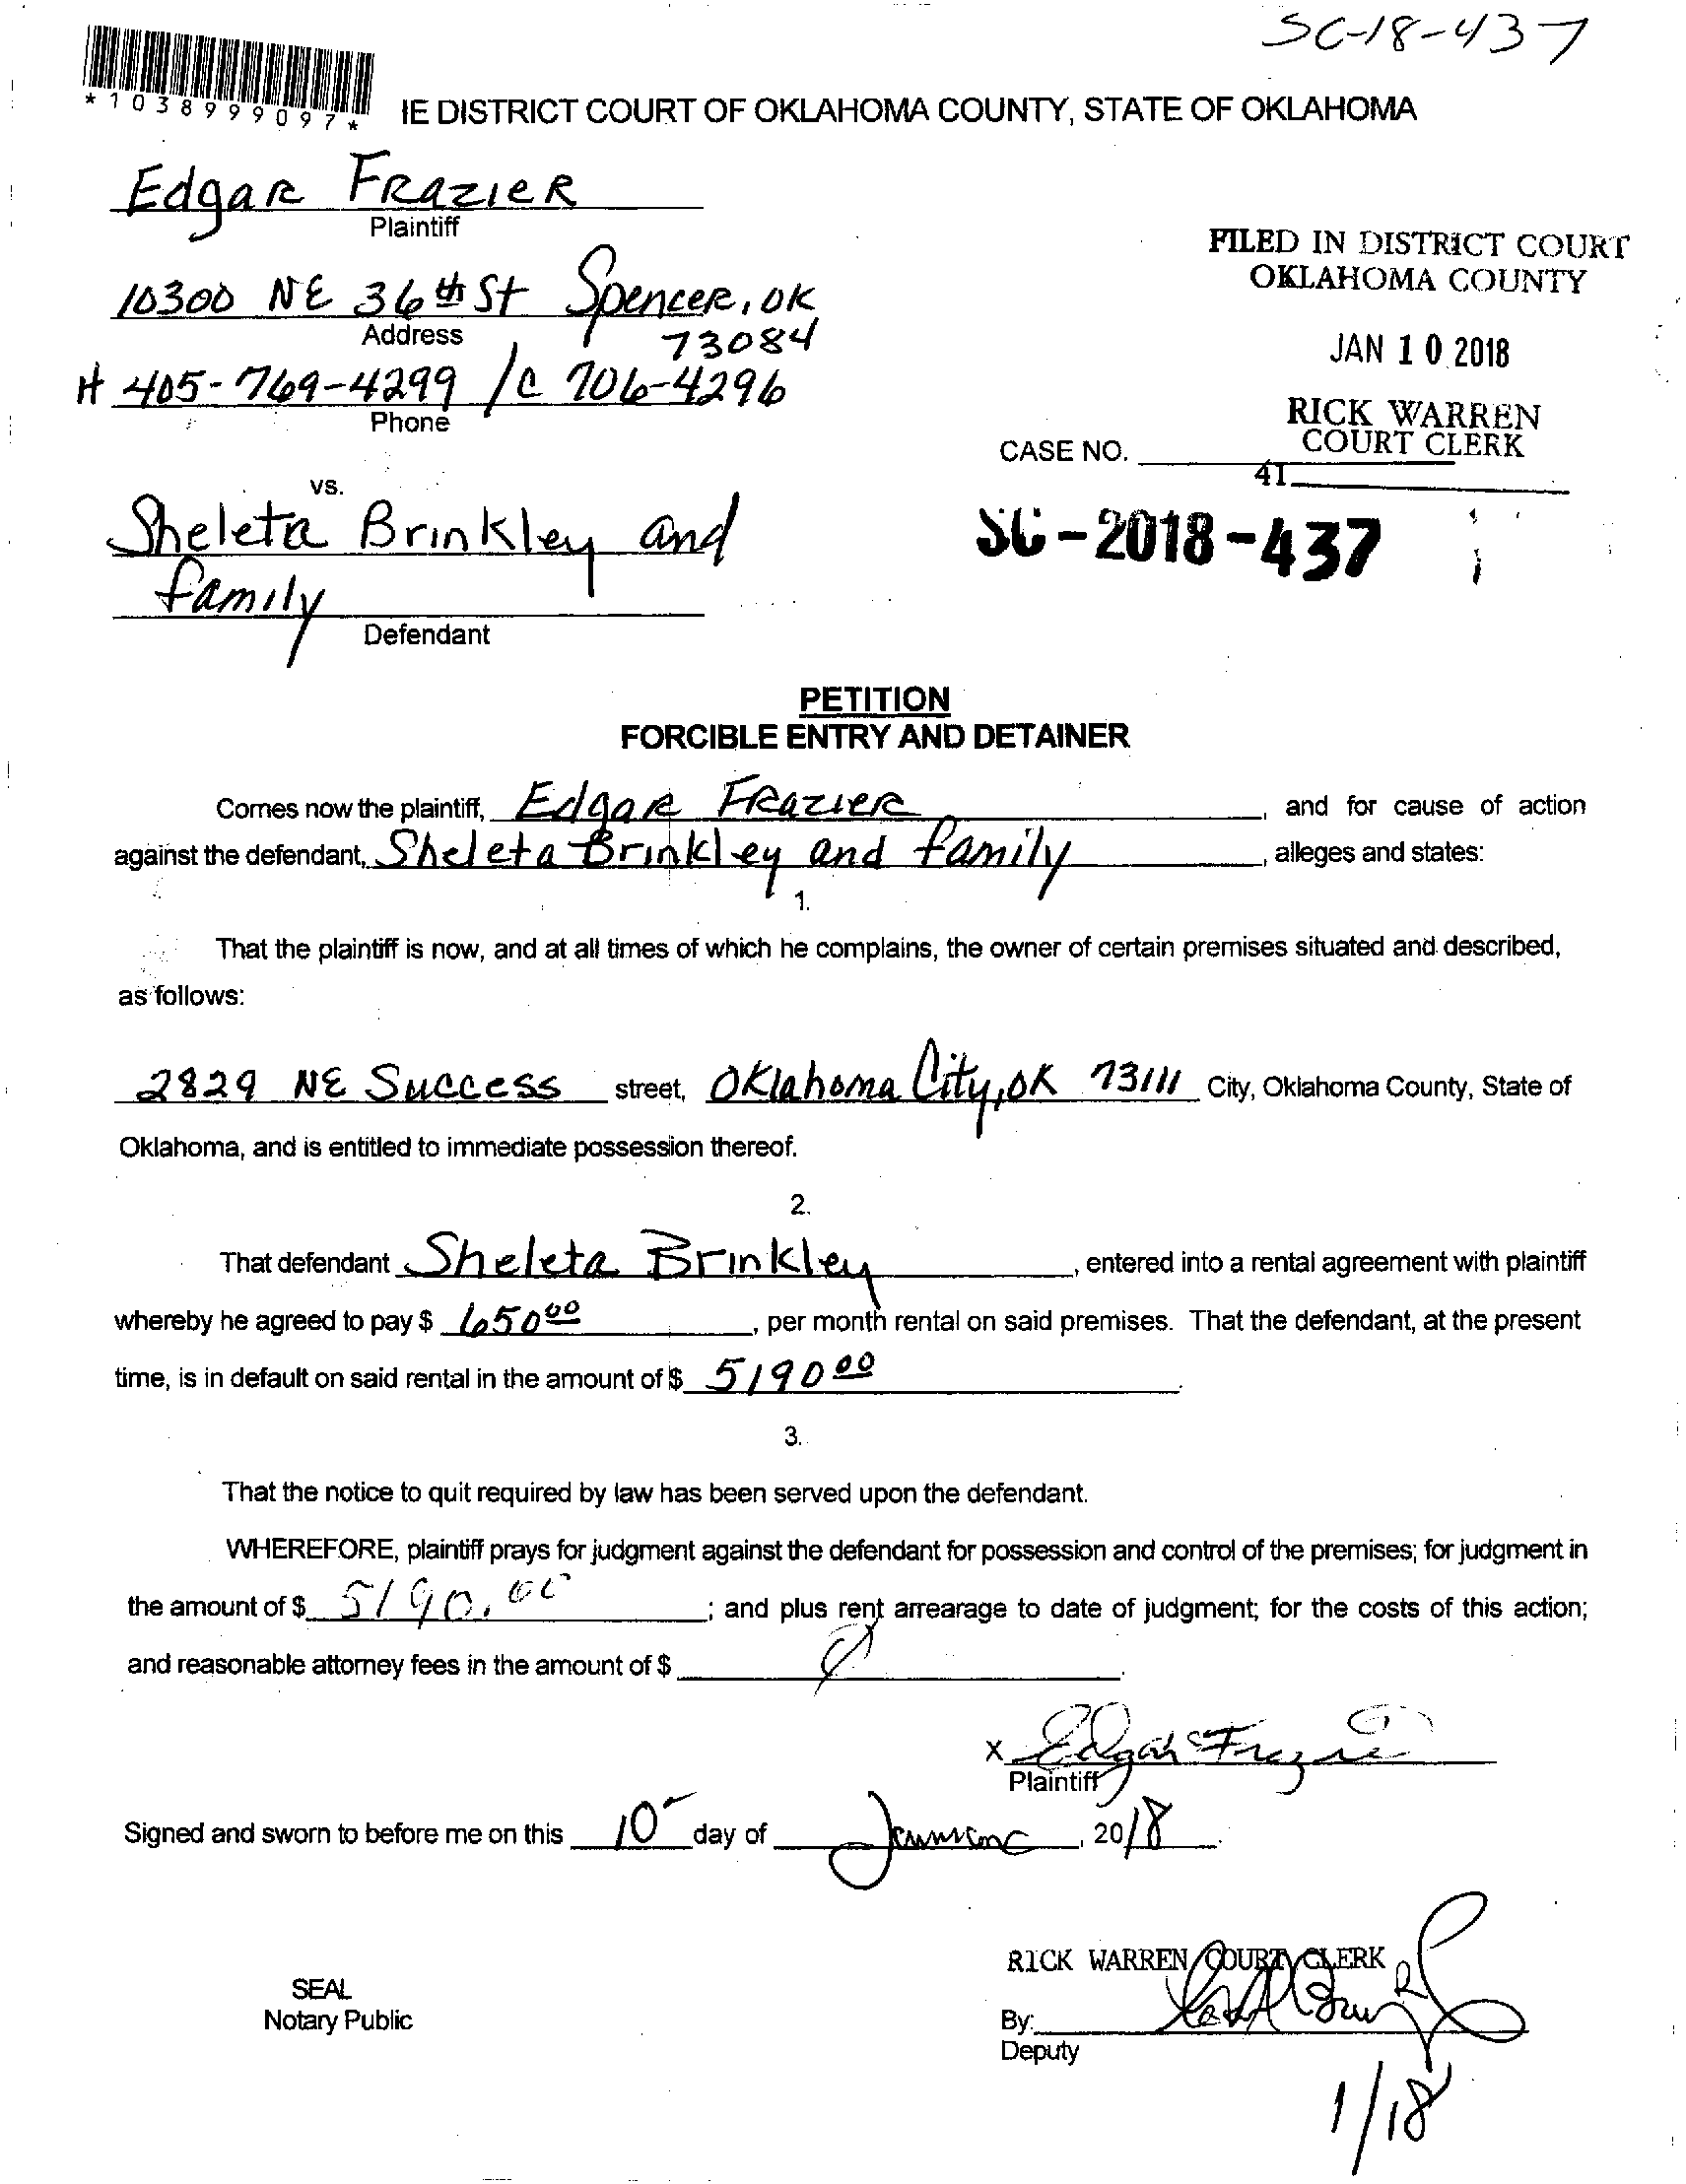 SC-18-437
*1038999097*
IE DISTRICT COURT OF OKLAHOMA COUNTY, STATE OF OKLAHOMA
Edgar Frazier
Plaintiff
10300 NE 36th St Spencer, OK
Address
73084
H 405-769-4299 / C 706-4296
Phone
FILED IN DISTRICT COURT
OKLAHOMA COUNTY
JAN 10 2018
RICK WARREN
COURT CLERK
CASE NO.
41
vs.
Sheleta Brinkley and
family
Defendant
SC-2018-437
PETITION
FORCIBLE ENTRY AND DETAINER
Comes now the plaintiff, Edgar Frazier, and for cause of action
against the defendant, Sheleta Brinkley and family, alleges and states:
1.
That the plaintiff is now, and at all times of which he complains, the owner of certain premises situated and described,
as follows:
2829 NE Success street, Oklahoma City, OK 73111 City, Oklahoma County, State of
Oklahoma, and is entitled to immediate possession thereof.
2.
That defendant Sheleta Brinkley, entered into a rental agreement with plaintiff
whereby he agreed to pay $ 650 00, per month rental on said premises. That the defendant, at the present
time, is in default on said rental in the amount of $ 5190 00
3.
That the notice to quit required by law has been served upon the defendant.
WHEREFORE, plaintiff prays for judgment against the defendant for possession and control of the premises; for judgment in
the amount of $ 5190.00; and plus rent arrearage to date of judgment; for the costs of this action;
and reasonable attorney fees in the amount of $
x Edgar Frazier
Plaintiff
Signed and sworn to before me on this 10 day of January, 2018
RICK WARREN COURT CLERK
SEAL
Notary Public
By:
Deputy
1/18